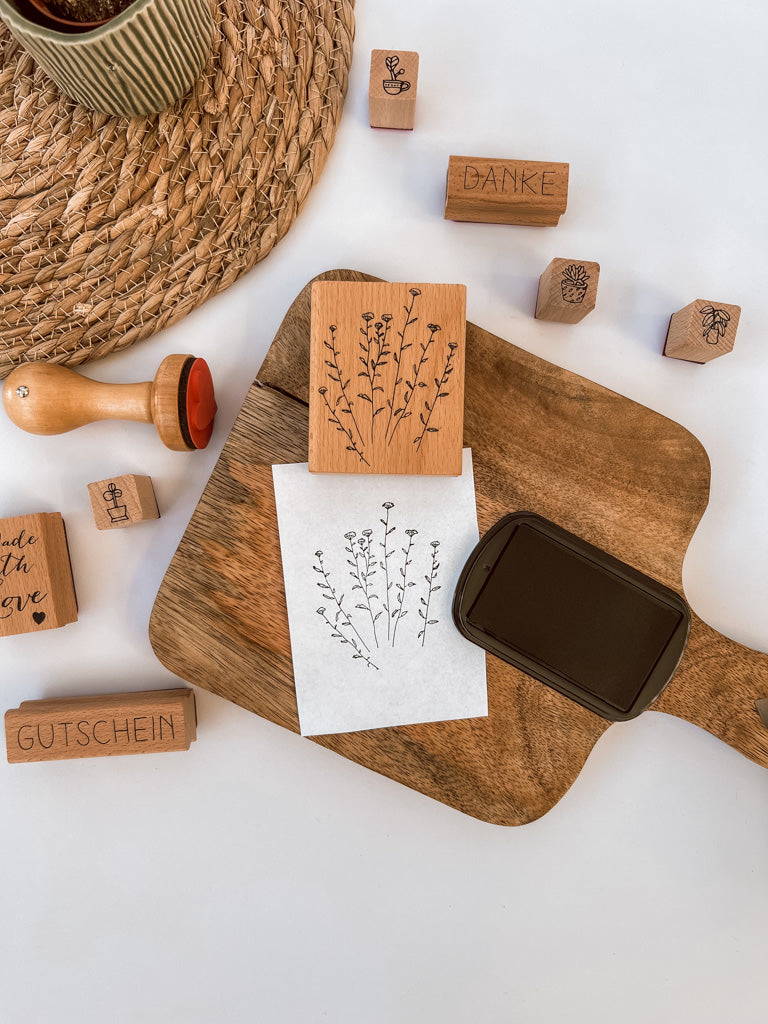 DANKE
ade
th
ove
GUTSCHEIN